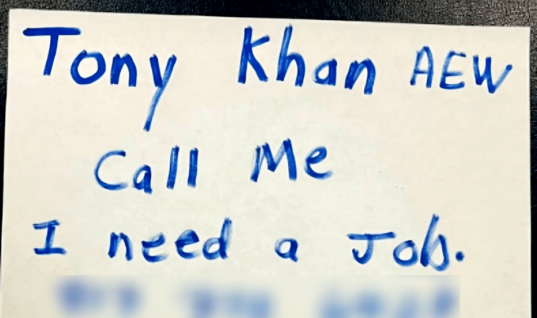 Tony Khan AEW
Call Me
I need a Job.